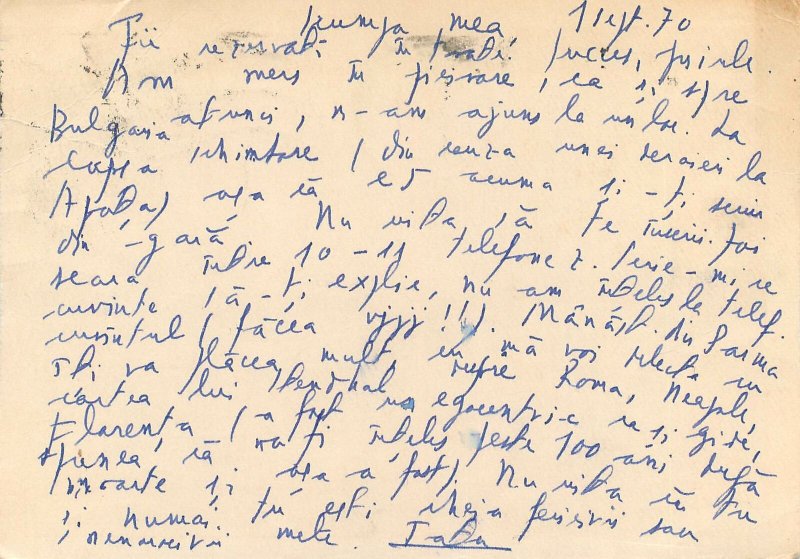 Scumpa mea, 1 sept. 70
Fii rezervată în toate, succes, 
Am mers în picioare, ca și spre
Bulgaria atunci, n-am ajuns la un loc. La
Copșa schimbare (din cauza unei deraieri la
Apața) așa că e 5 acuma și-ți scriu
din -gară. Nu uita să te însori. Joi
seara între 10-11 telefonez. Scrie-mi ce
cuvinte să-ți explic, nu am înțeles la telef.
cuvîntul (făcea vjjj!!). Mănăst. din Parma
îți va plăcea mult, eu mă voi delecta cu
cartea lui Stendhal despre Roma, Neapole,
Florența (a fost un egocentric ca și Gide,
spunea că va fi înțeles peste 100 ani după
moarte și așa a fost). Nu uita că tu
și numai tu ești cheia fericirii sau
nenorocirii mele.